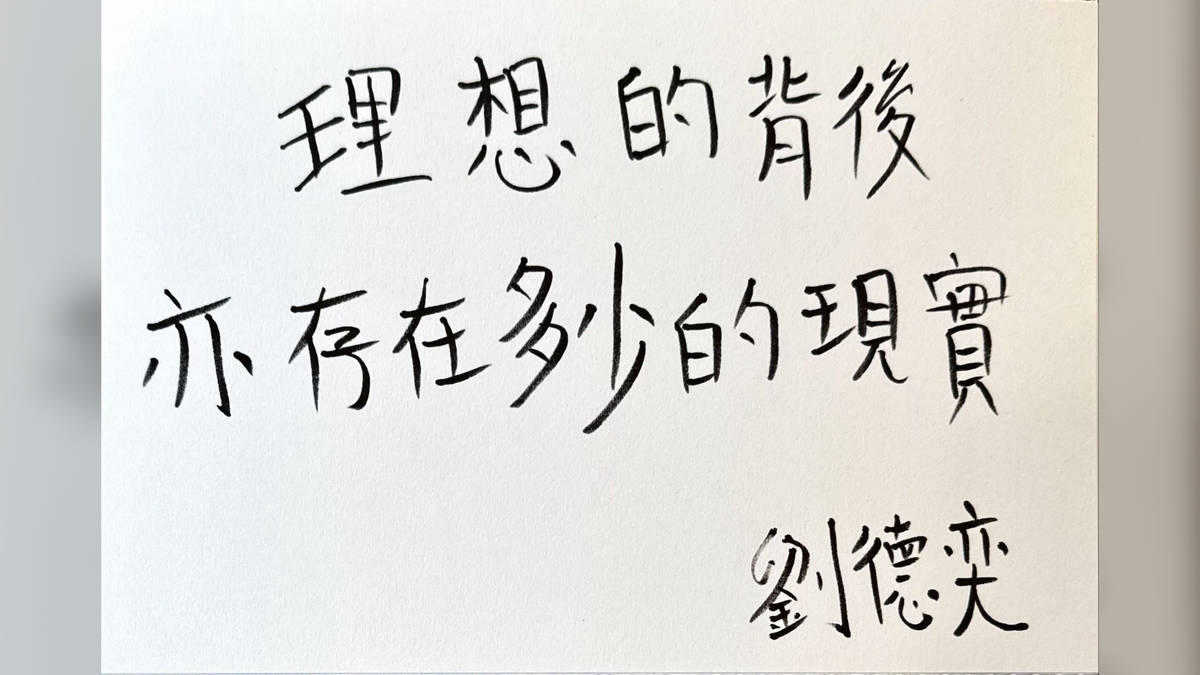 理想的背後
亦存在多少的現實
劉德奕